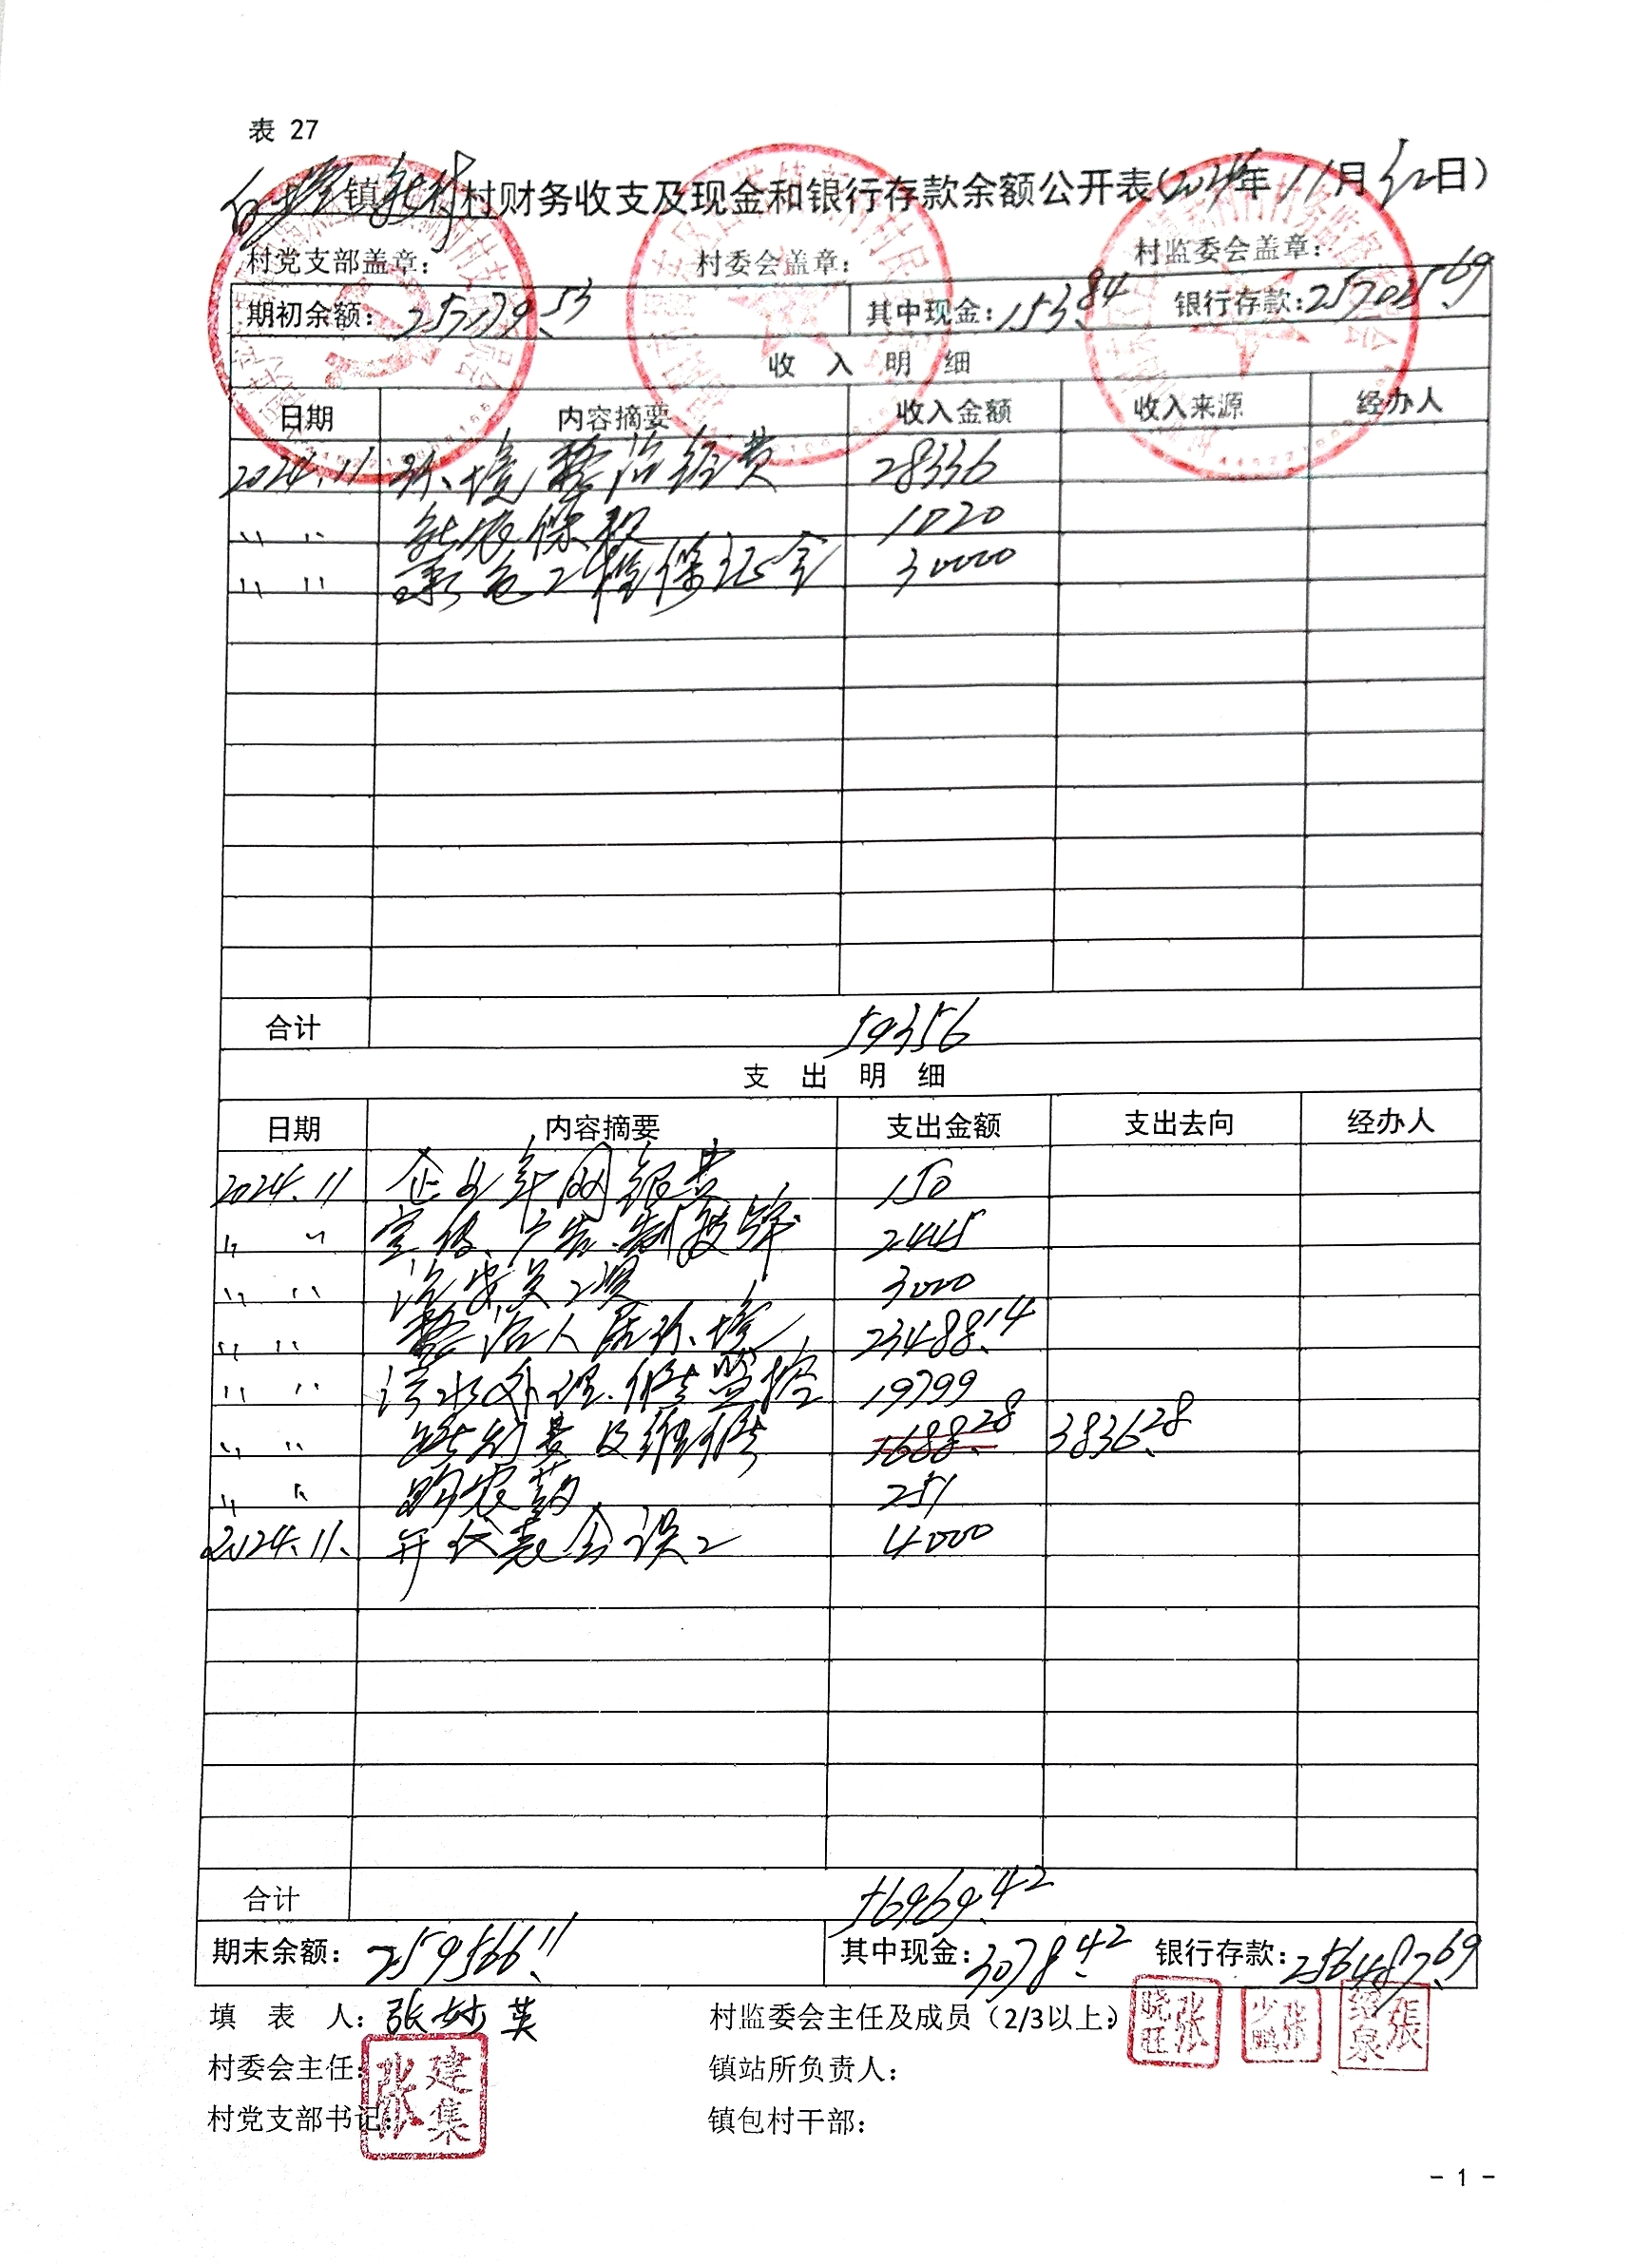 表 27
镇 村财务收支及现金和银行存款余额公开表(2024年 11月 30日)
村党支部盖章: 村委会盖章: 村监委会盖章:
期初余额: 257179.53 其中现金: 153.84 银行存款: 257025.69
收 入 明 细
日期 内容摘要 收入金额 收入来源 经办人
2024.11 环境整治经费 28336
〃 〃 1020
〃 〃 承包工程保证金 30000
合计 59356
支 出 明 细
日期 内容摘要 支出金额 支出去向 经办人
2024.11 企业年网银费 150
〃 〃 宣传、广告、制 2445
〃 〃 治安员工资 3000
〃 〃 整治人居环境 23488.14
〃 〃 污水处理、修监控 19799
〃 〃 路灯费及维修 3836.28
〃 〃 购农药 251
2024.11. 开代表会误工 4000
合计 56969.42
期末余额: 259566.11 其中现金: 3078.42 银行存款: 256487.69
填 表 人: 张妙英 村监委会主任及成员（2/3以上）: 张晓旺 张少鹏 張绍泉
村委会主任: 张建集 镇站所负责人:
村党支部书记: 镇包村干部:
- 1 -